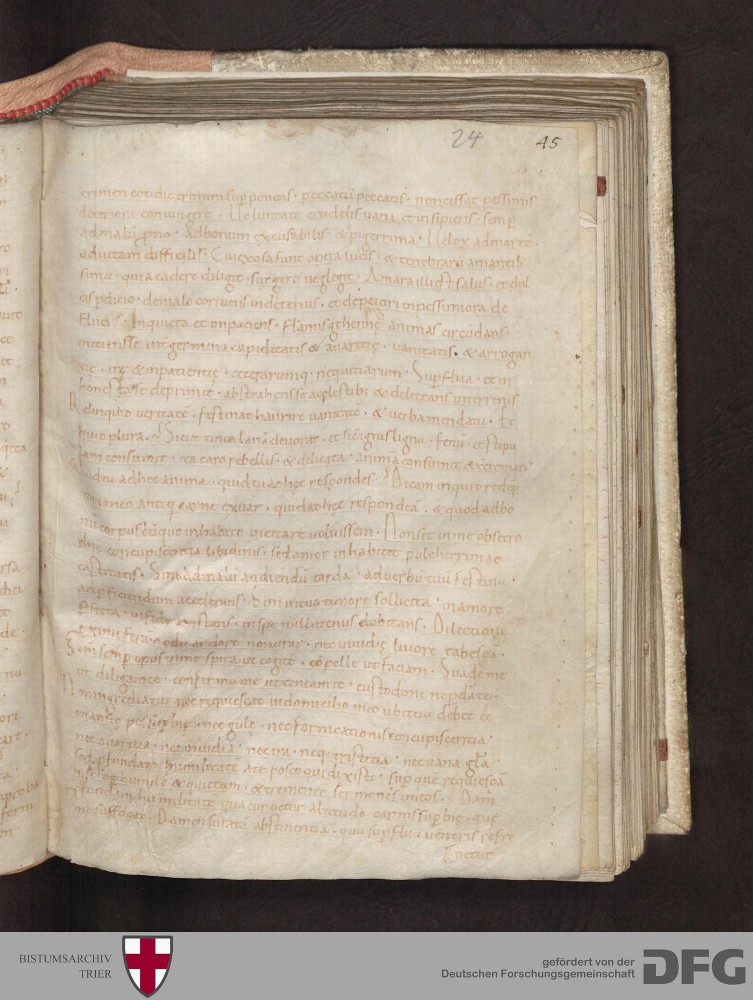 24 45
crimen cotidie crimini sup ponens · peccatū peccatis · non cessat pessimis
deteriora coniungere · Uoluntate crudelis uana et insipiens · semp
ad mali prio · ad bonum excusabilis & pigerrima · Uelox ad morte
ad uitam difficilis · Cui exosa sunt opera lucis & tenebrarū amantis
sima · quia cadere diligit · surgere neglegit · Amara illi ē salus · et dul
cis pdicio · de malo corruens in deterius · et de peiori in pessimiora de
fluens · Inquieta et inpatiens · flammis gehennę animas circūdans ·
germina cupiditatis & auaritię · uanitatis · & arrogan
tię · irę & inpatientię · ceterarumq nequitiarum · Supflua · et in
honesta deprimit · abstrahens se a cęlestib; & delectans in terrenis
Relinquit ueritatē · festinat haurire uanitatē · & uerba mendacii · Et
quid plura · Sicut tinea lanā deuorat · et sic ignis ligna · fenū · et stipu
lam consumit · ita caro rebellis · & delicata · animā consumit & exterminat ·
Quid tu ad hęc anima · quid tu ad hęc respondes · Dicam inquit redēp
tori meo anteq̄ carne exuar · quid ad hęc respondeā · & quod ad bo
nū corpus in quo inhabito incitare uoluissem · Non sit in me obsecro
dne concupiscentia libidinis · sed amor inhabitet pulcherrimae
castitatis · Sim ad mala audiendū tarda · ad uerbū tuū festina ·
ad pficiendum accelerans · Sim in tuo timore sollicita · in amore
pfecta · in fide constans · in spe nullatenus dubitans · Dilectione
eximia · odii ardore non urar · nec inuidię liuore tabescā ·
Scm semp opus in me spira ut cogitē · cōpelle ut faciam · Suade me
ut diligam te · confirma me ut teneam te · custodi me ne pdā te ·
Non ingrediatur nec requiescat in domicilio meo ubi tua debet eē
mansio pes supbię · nec gulę · nec fornicationis concupiscentia ·
nec auaritia · nec inuidia · nec ira · neq tristitia · nec uana gła ·
sed pfundam humilitatē a te posco qui dixisti · sup que requiescā
nisi sup humilē & quietum · & trementē sermones meos · Dam
pfundam humilitatē qua curuetur altitudo carnis supbię · que
me suffocat · Da mensuratā abstinentiā · qua supflua uentris refre
nentur
BISTUMSARCHIV
TRIER
gefördert von der
Deutschen Forschungsgemeinschaft
DFG